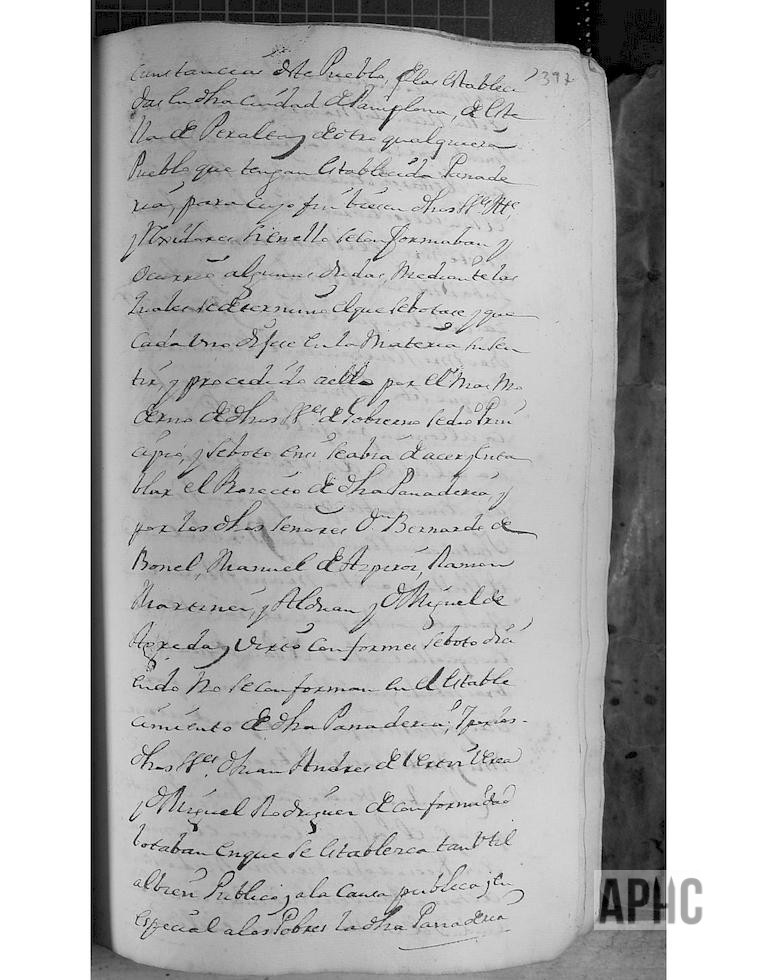 cunstancias deste Pueblo, de las Estableci
das en dha ciudad de Pamplona, de Este
lla de Peralta, y de otro qualquiera
Pueblo que tengan Establecida Panade
ria, para cuyo fin biesen dhos SSes Alte
y Rexidores si en ello se conformaban y
Ocurrio algunas dudas, Mediante las
quales se determino el que se botase y que
cada uno dijese en la Materia su sen
tir, y procedido a ello por el mas Mo
derno de dhos SSes de Gobierno se dio Prin
cipio, y se boto en si se abia de acer y enta
blar el Proiecto de dha Panaderia, y
por los dhos Señores Dn Bernardo de
Bonel, Manuel de Azpiroz, Ramon
Martinez, y Alduan y Dn Miguel de
Agreda, y Virto conformes se boto dici
endo no se conforman en el Estable
cimiento de dha Panaderia, Y por los
dhos SSes Juan Andres de Verea
y Dn Miguel Rodriguez de conformidad
botaban en que se Establezca tan Util
al bien Publico, y a la Causa publica y en
especial a los Pobres la dha Panaderia
397
APHC